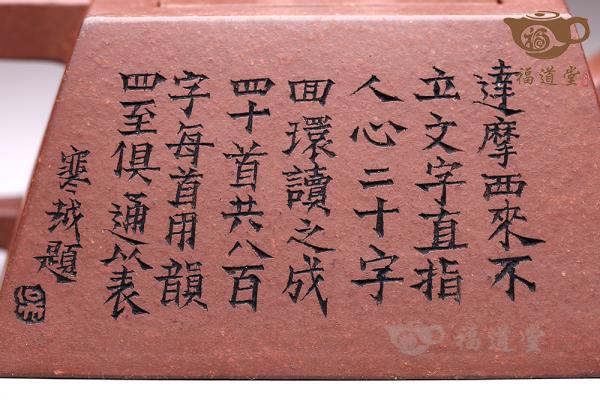 達摩西來不
立文字直指
人心二十字
回環讀之成
四十首共八百
字每首用韻
四至俱通以表
寒越題
福道堂
福道堂